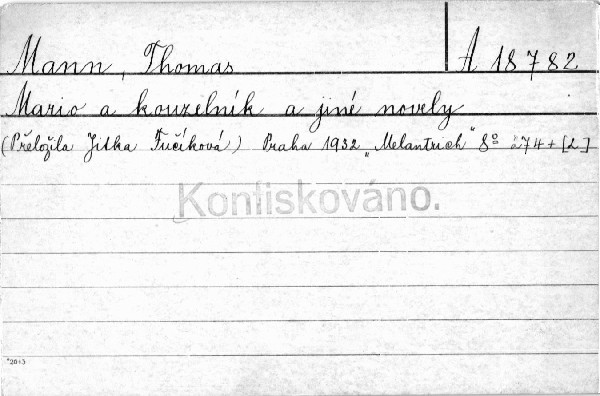 Mann, Thomas A 18782
Mario a kouzelník a jiné novely
(Přeložila Jitka Fučíková) Praha 1932 „Melantrich“ 8º 274 + [2]
Konfiskováno.
*2013